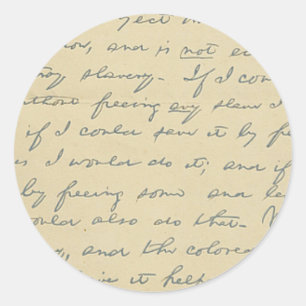 ject
ion, and is not ei
roy slavery - If I cou
ithout freeing any slave I
if I could save it by fre
es I would do it; and if
by freeing some and lea
ould also do that -
and the colore
it help